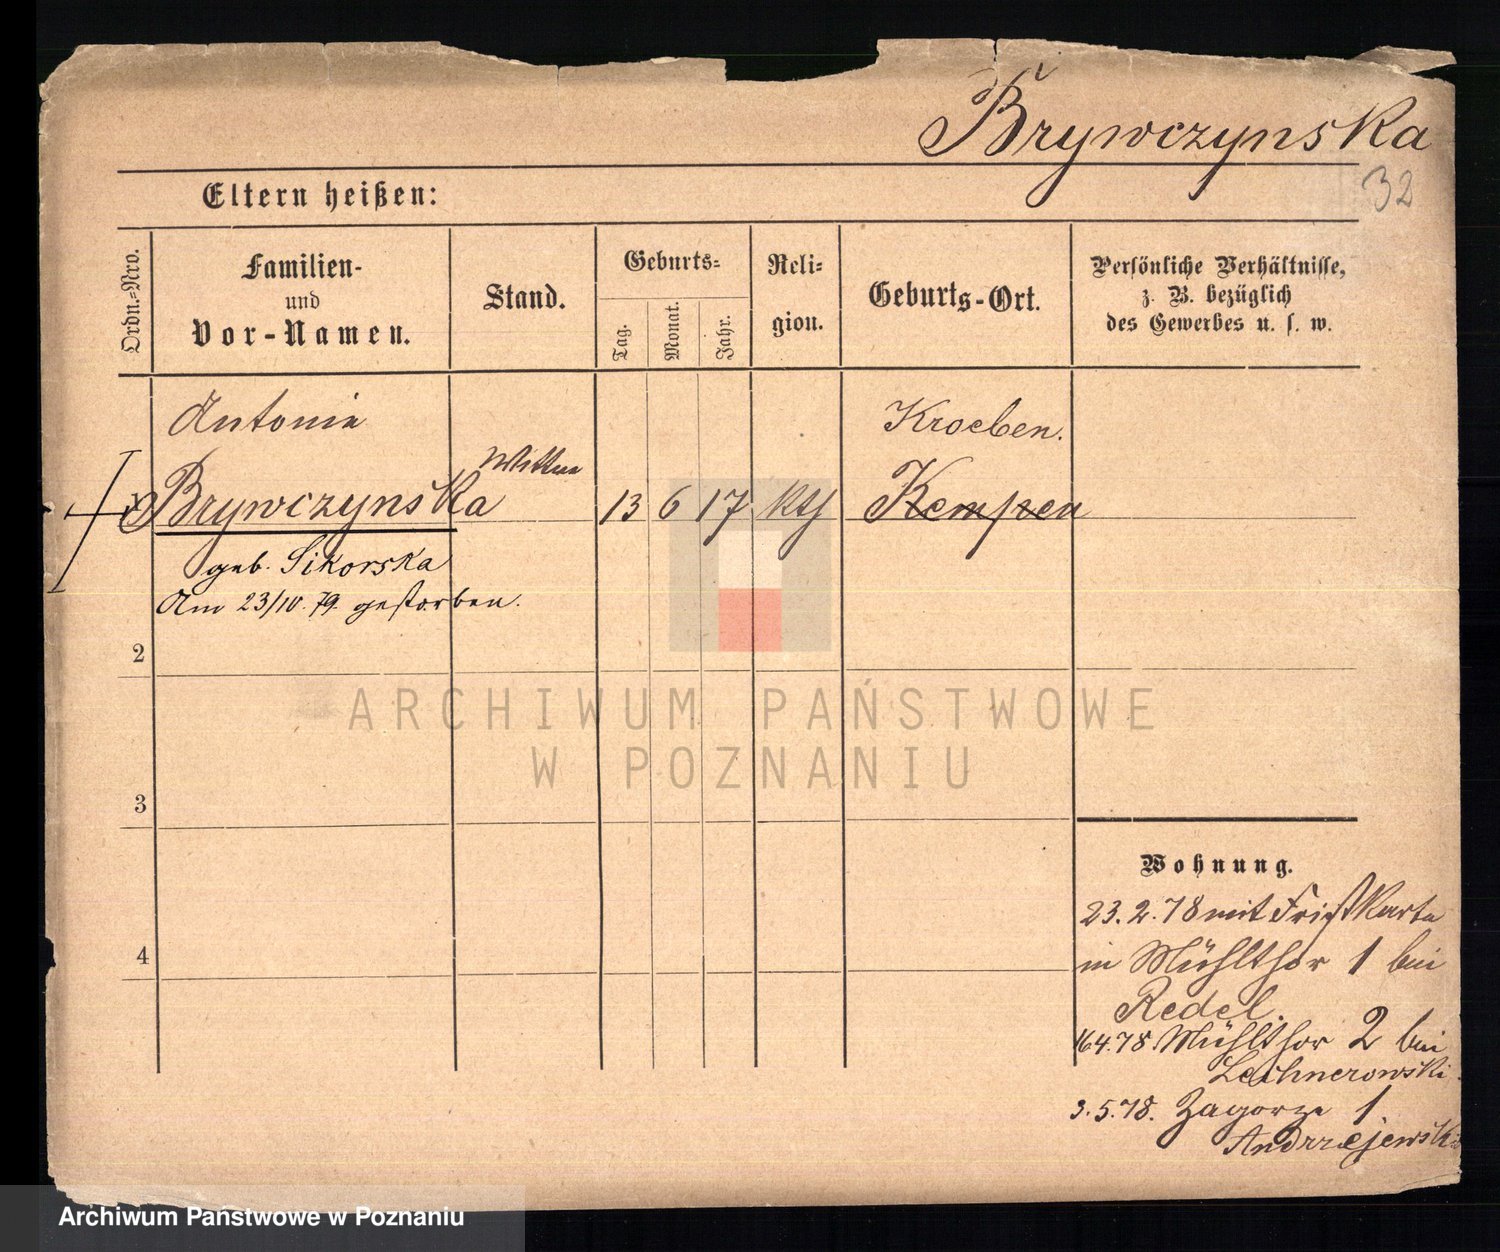 Brywczynska
32
Eltern heißen:
Ordn.-Nro.
Familien-
und
Vor-Namen.
Stand.
Geburts-
Tag.
Monat.
Jahr.
Reli-
gion.
Geburts-Ort.
Persönliche Verhältnisse,
z. B. bezüglich
des Gewerbes u. s. w.
Antonie
Kroeben.
Wittwe
Brywczynska
13 6 17 kth Kempen
geb. Sikorska
Am 23/10. 79. gestorben.
2
3
4
Wohnung.
23.2.78 mit Fristkarte
in Mühlthor 1 bei
Redel.
16.4.78. Mühlthor 2 bei
Lechnerowski.
3.5.78. Zagorze 1
Andrzejewski
ARCHIWUM PAŃSTWOWE
W POZNANIU
Archiwum Państwowe w Poznaniu